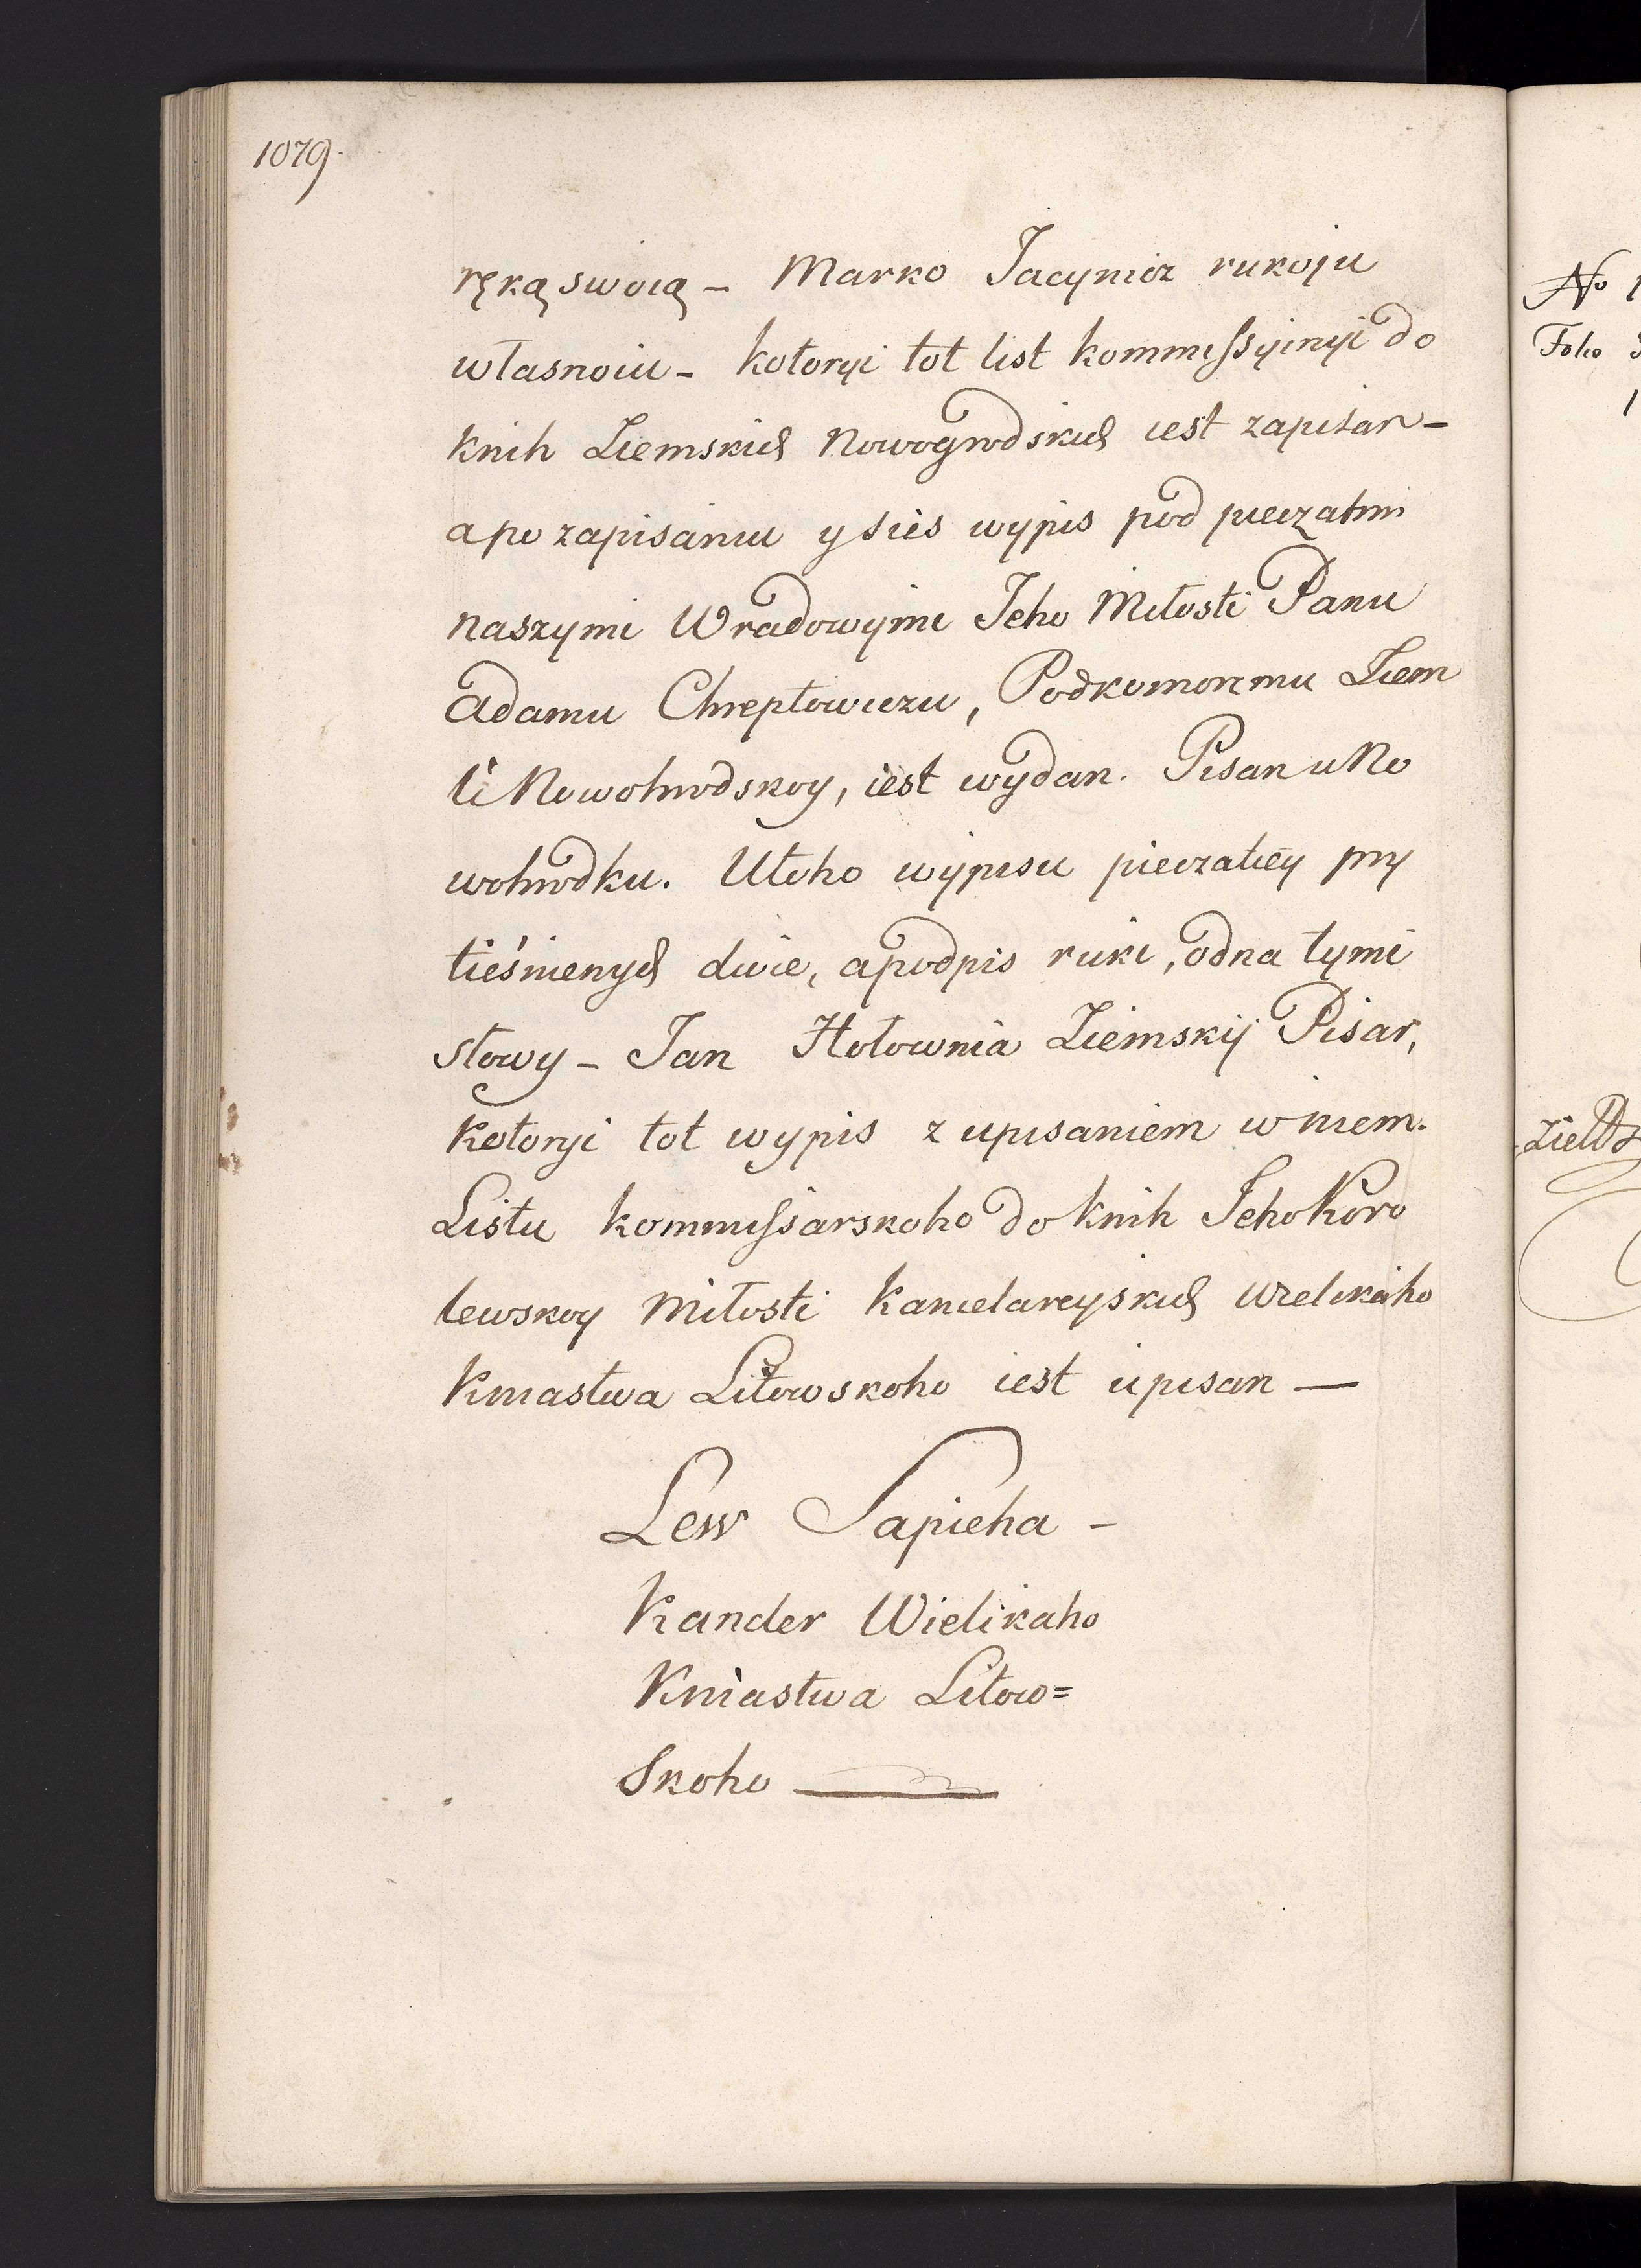 1079.
ręką swoią – Marko Jacynicz rukoju
własnoiu – kotoryi tot list kommissyinyi do
knih Ziemskich Nowogrodskich iest zapisan –
a po zapisaniu y sies wypis pod pieczatmi
naszymi Wradowymi Jeho Miłosti Panu
Adamu Chreptowiczu, Podkomormu Ziem
li Nowohrodskoy, iest wydan. Pisan u No
wohrodku. U toho wypisu pieczatiey pry
tieśnienych dwie, a podpis ruki, odna tymi
słowy – Jan Hołownia Ziemskij Pisar,
Kotoryi tot wypis z upisaniem w niem.
Listu kommissarskoho do knih Jeho Koro
lewskoy Miłosti Kancelareyskich Wielikaho
Kniastwa Litowskoho iest upisan —
Lew Sapieha –
Kancler Wielikaho
Kniastwa Litow=
Skoho —
No
Folio